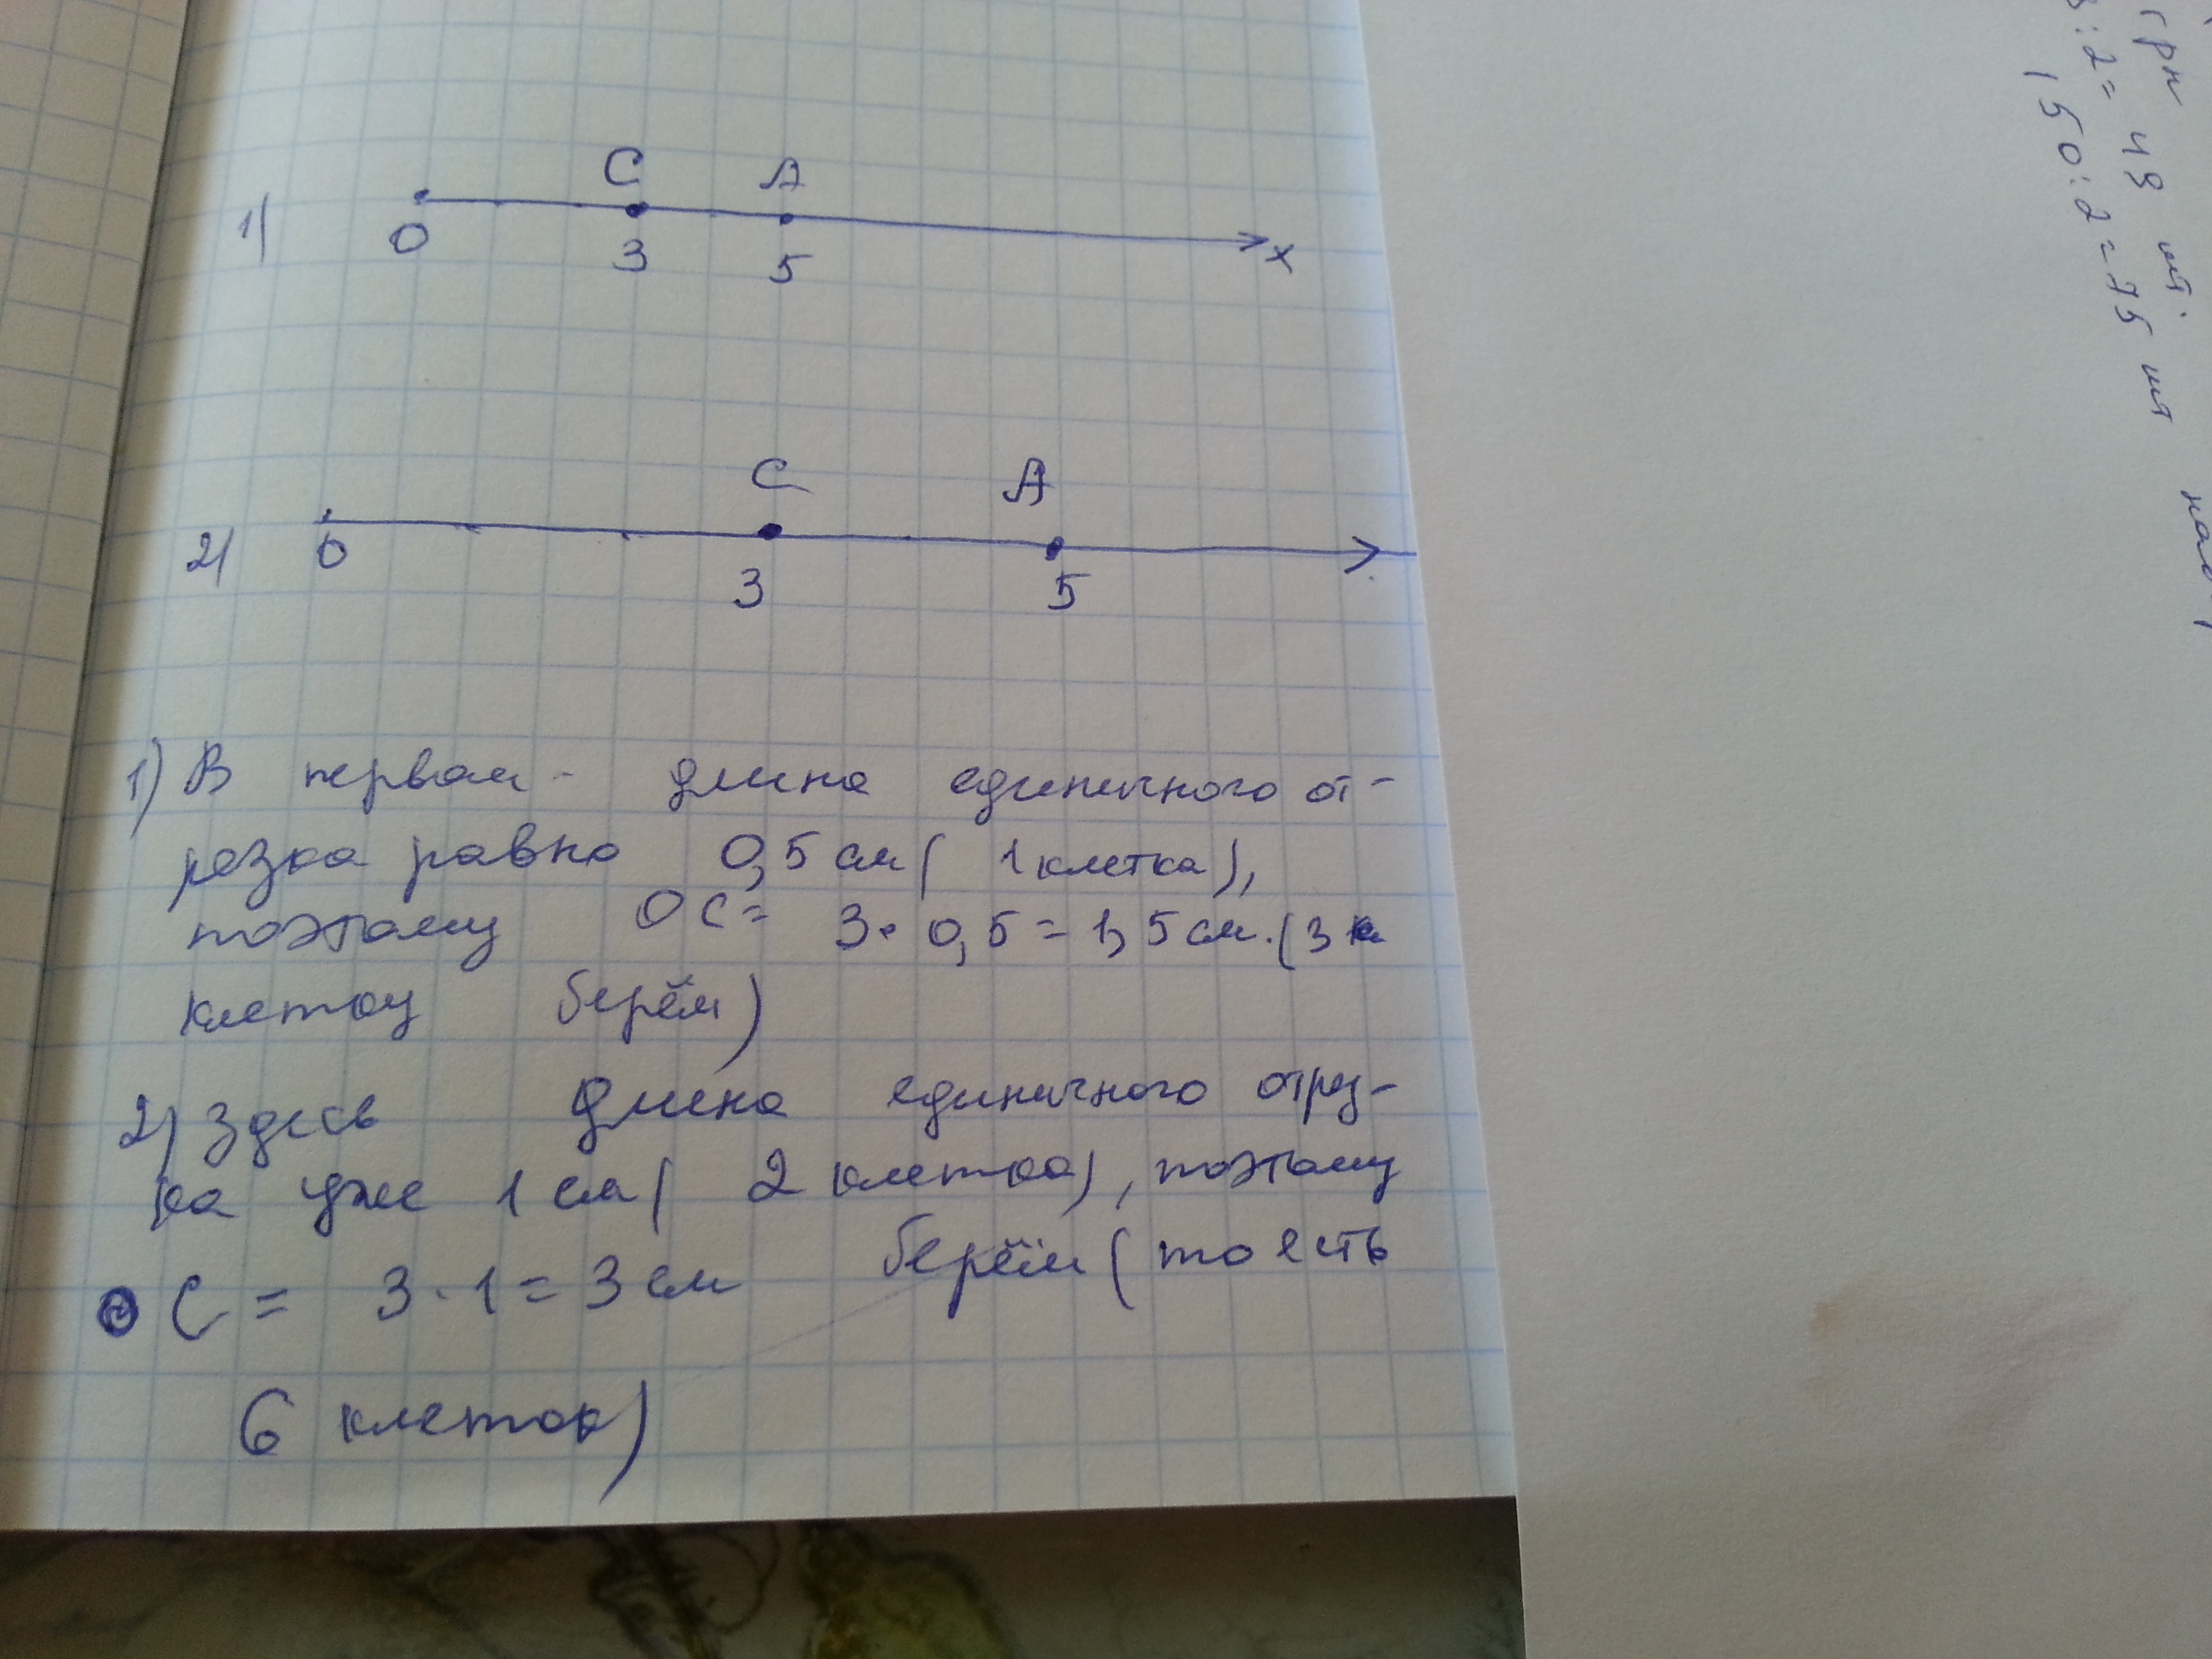 С А
1)
0 3 5 х
С А
2)
0 3 5
1) В первом - длина единичного от-
резка равно 0,5 см ( 1 клетка),
поэтому ОС = 3 · 0,5 = 1,5 см. (3 к
клетоу берём)
2) Здесь длина единичного отрез-
ка уже 1 см ( 2 клетка), поэтому
О С = 3 · 1 = 3 см берём ( то есть
6 клеток)
грн
:2= 48 шт.
150:2=75 шт